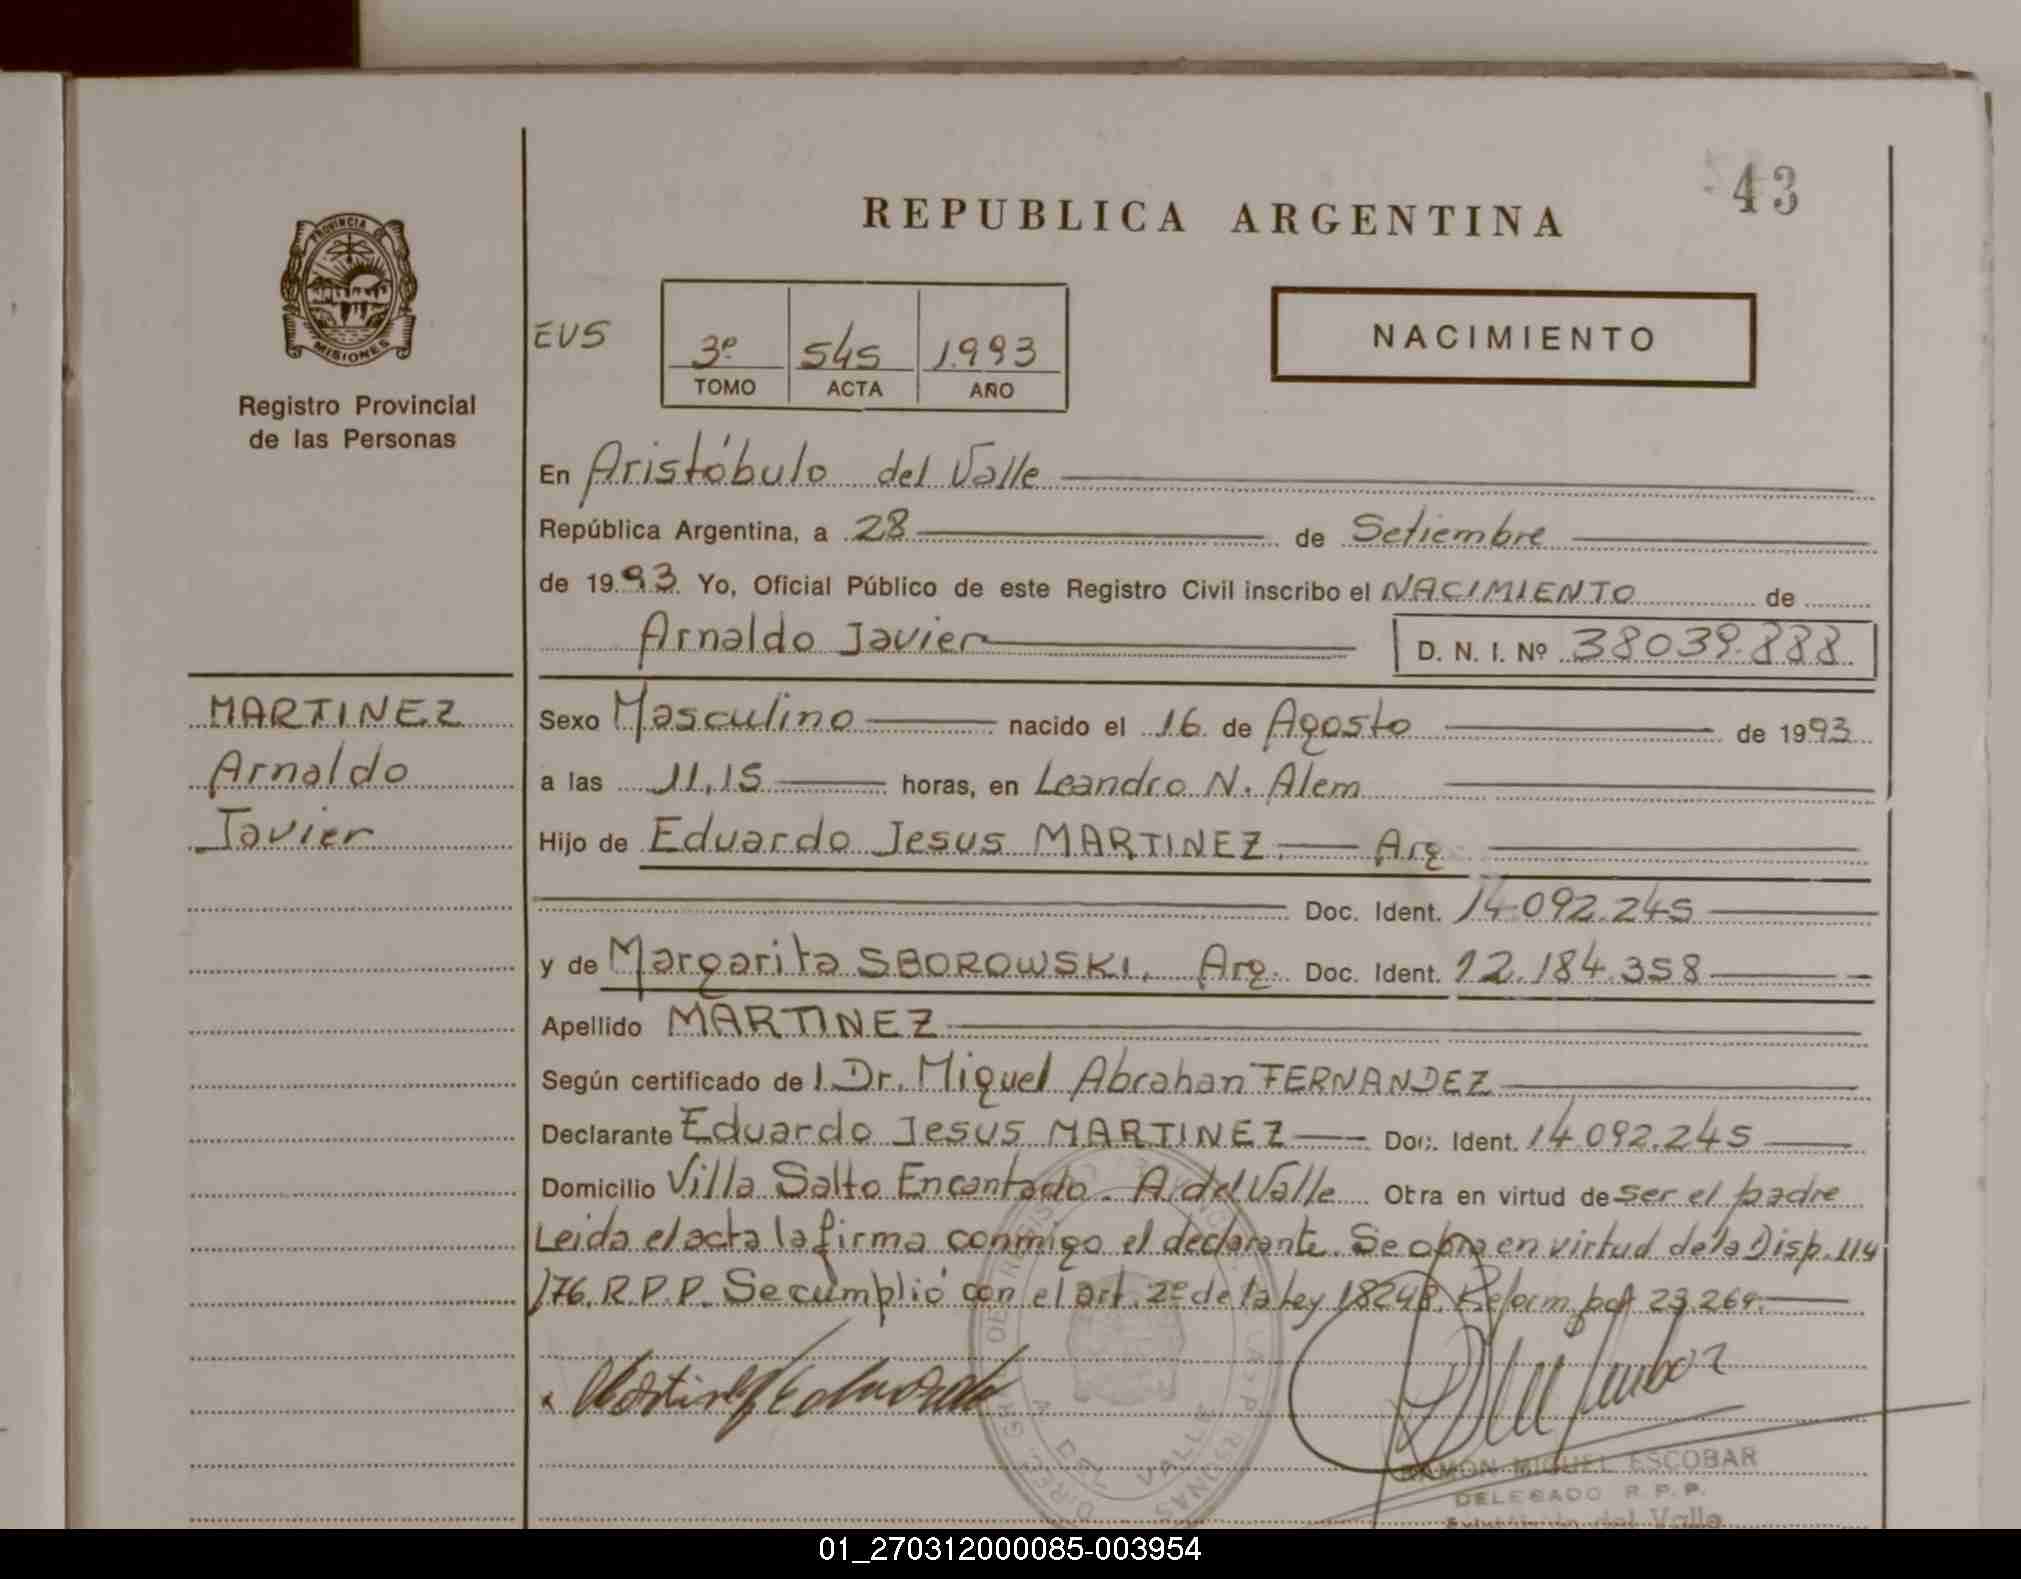 43
REPUBLICA ARGENTINA
PROVINCIA DE
MISIONES
Registro Provincial
de las Personas
EVS
3º 545 1.993
TOMO ACTA AÑO
NACIMIENTO
En Aristóbulo del Valle
República Argentina, a 28 de Setiembre
de 1993 Yo, Oficial Público de este Registro Civil inscribo el NACIMIENTO de
Arnaldo Javier D. N. I. Nº 38039.888
MARTINEZ
Arnaldo
Javier
Sexo Masculino nacido el 16 de Agosto de 1993
a las 11,15 horas, en Leandro N. Alem
Hijo de Eduardo Jesus MARTINEZ Arg
Doc. Ident. 14.092.245
y de Margarita SBOROWSKI. Arg. Doc. Ident. 12.184.358
Apellido MARTINEZ
Según certificado de l Dr. Miguel Abrahan FERNANDEZ
Declarante Eduardo Jesus MARTINEZ Doc. Ident. 14.092.245
Domicilio Villa Salto Encantado. A. del Valle Obra en virtud de ser el padre
Leida el acta la firma conmigo el declarante. Se obra en virtud de la Disp. 114
/76. R.P.P. Se cumplió con el art. 2º de la Ley 18248. Reform. por 23.264.
Martinez Eduardo
RAMON MIGUEL ESCOBAR
DELEGADO R. P. P.
del Valle
01_270312000085-003954